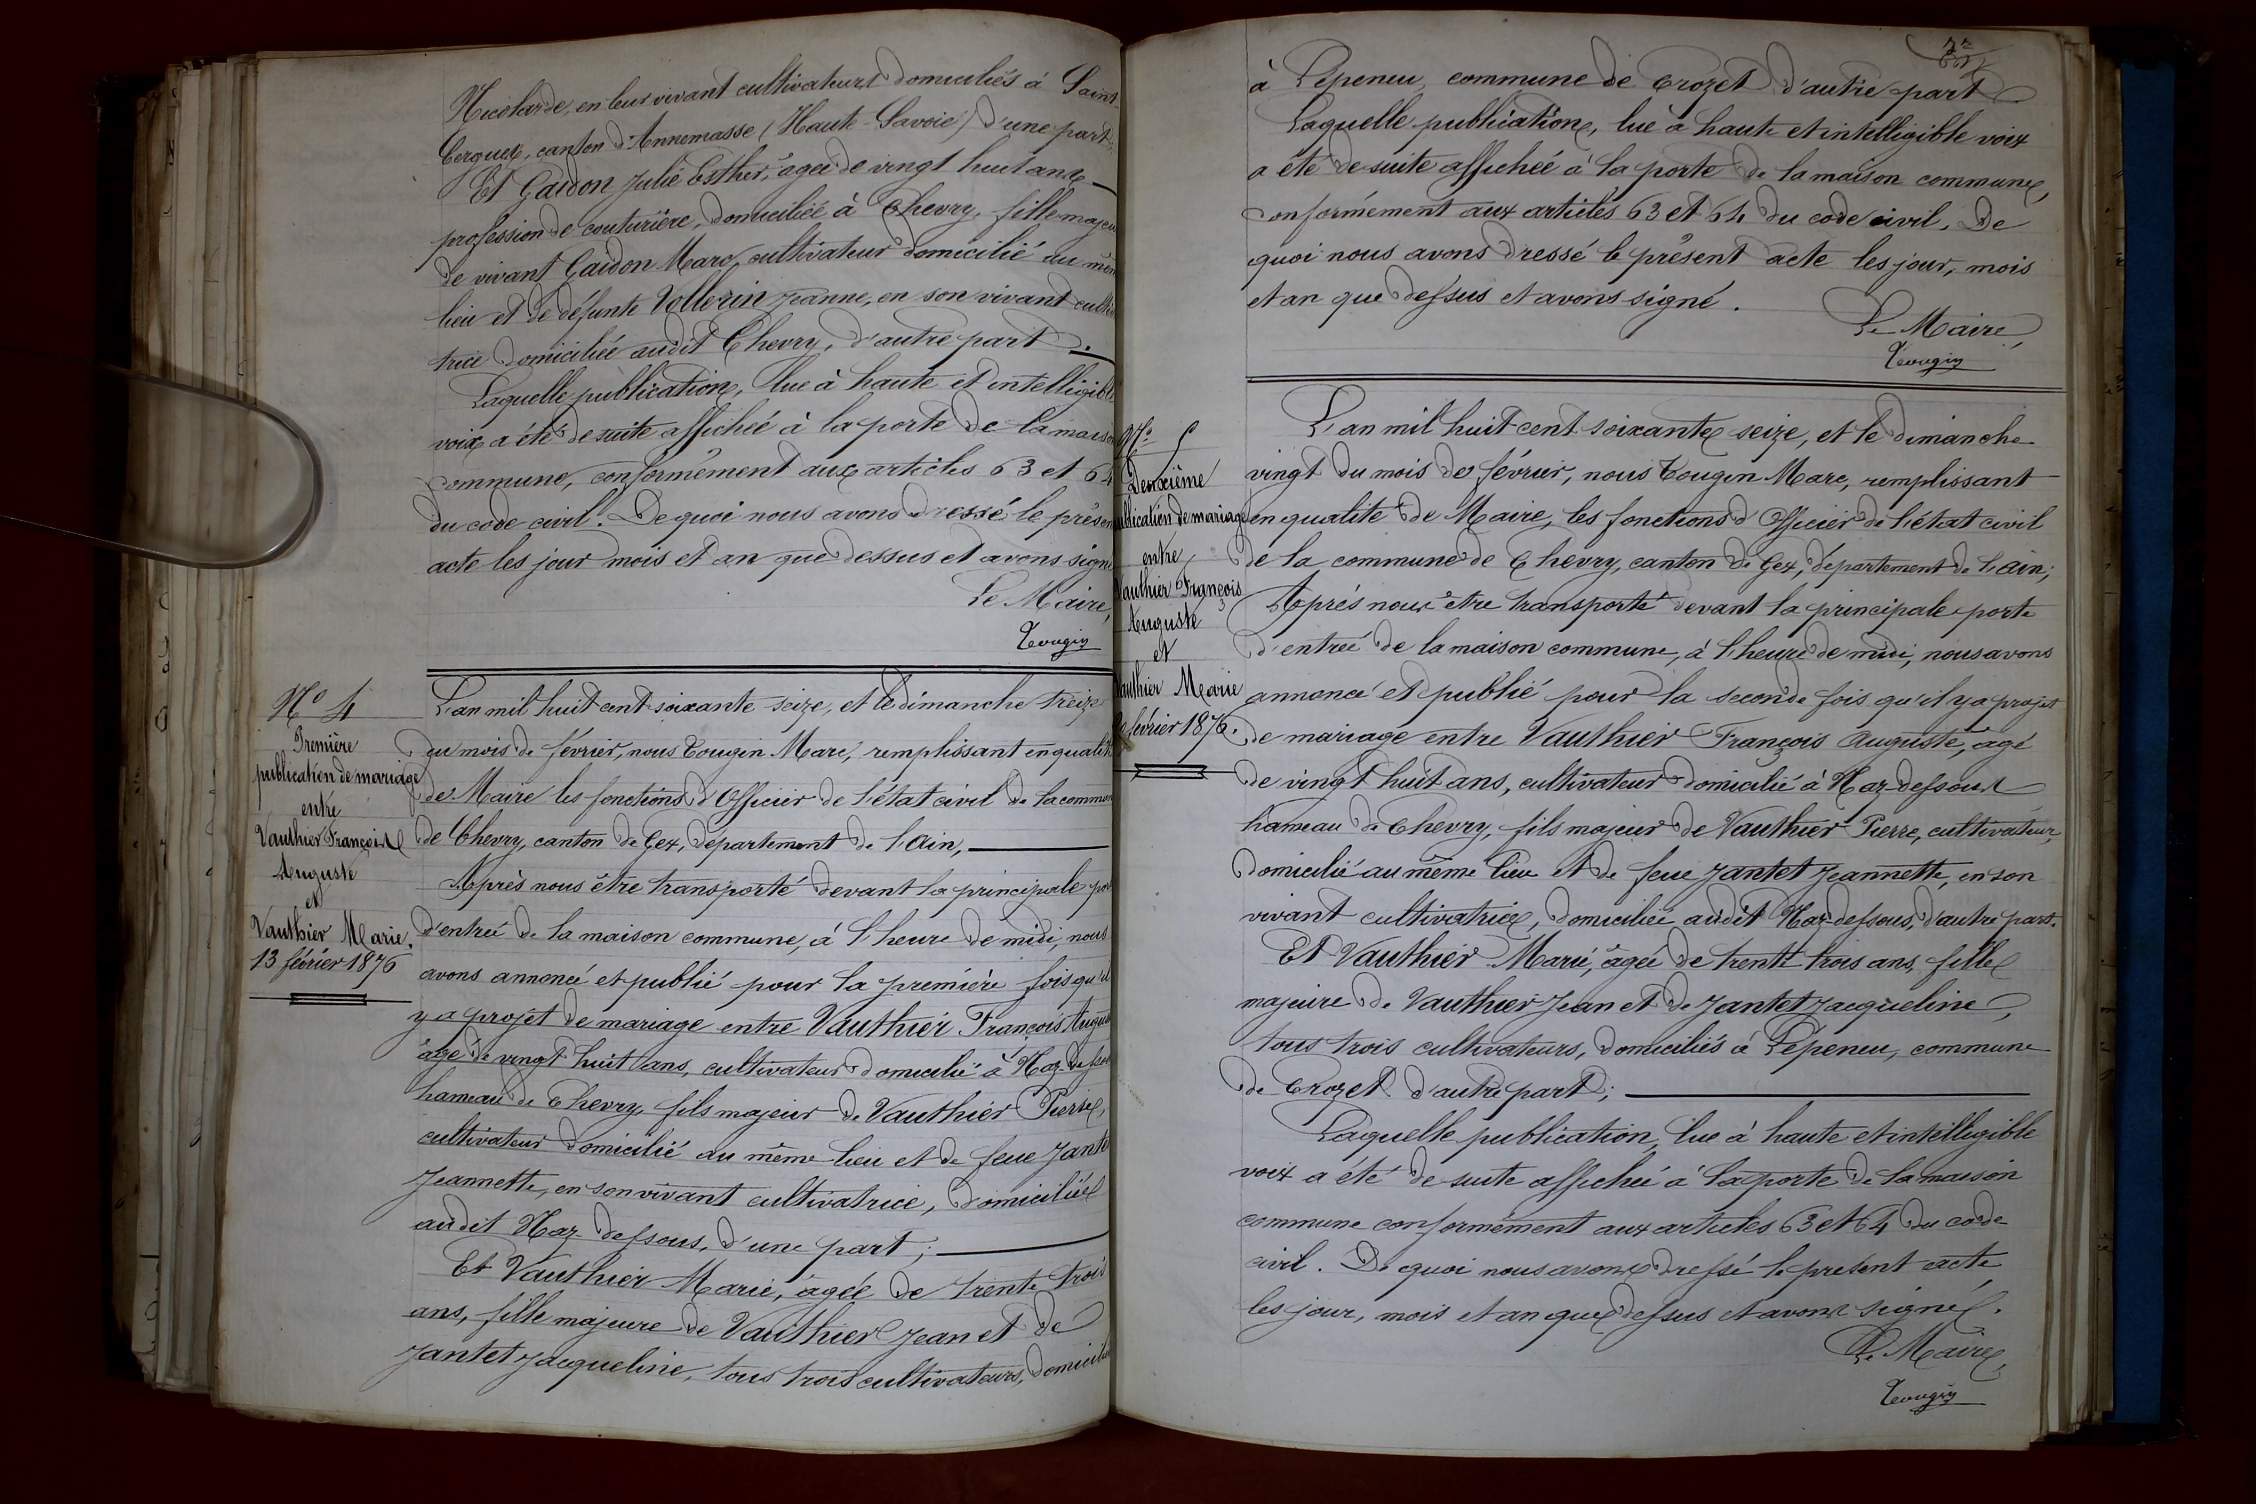 Nicolarde, en leur vivant cultivateurs domiciliés à Saint-
Cergues, canton d'Annemasse (Haute-Savoie) d'une part;
Et Gaidon Julie Esther, agée de vingt huit ans
profession de couturière, domiciliée à Chevry, fille majeu
de vivant Gaidon Marc, cultivateur domicilié au mêm
lieu et de défunte Vollerin Jeanne, en son vivant culti
trice domiciliée audit Chevry, d'autre part.
Laquelle publication, lue à haute et intelligibl
voix a été de suite affichée à la porte de la maiso
commune, conformément aux articles 63 et 64
du code civil. De quoi nous avons dressé le présen
acte les jour mois et an que dessus et avons signé
Le Maire,
Tougin
N° 4
Première
publication de mariage
entre
Vauthier François
Auguste
et
Vauthier Marie.
13 février 1876
L'an mil huit cent soixante seize, et le dimanche treize
du mois de février, nous Tougin Marc, remplissant en qualité
de Maire les fonctions d'Officier de l'état civil de la commun
de Chevry, canton de Gex, département de l'Ain,
Après nous être transporté devant la principale por
d'entrée de la maison commune, à l'heure de midi, nous
avons annoncé et publié pour la première fois qu'il
y a projet de mariage entre Vauthier François Augus
âgé de vingt huit ans, cultivateur domicilié à Naz-dessou
hameau de Chevry, fils majeur de Vauthier Pierre,
cultivateur domicilié au même lieu et de feue Jante
Jeannette, en son vivant cultivatrice, domiciliée
audit Naz-dessous, d'une part;
Et Vauthier Marie, âgée de trente trois
ans, fille majeure de Vauthier Jean et de
Jantet Jacqueline, tous trois cultivateurs, domicili
à Lépeneu, commune de Crozet d'autre part
Laquelle publication, lue à haute et intelligible voix
a été de suite affichée à la porte de la maison commune,
conformément aux articles 63 et 64 du code civil. De
quoi nous avons dressé le présent acte les jour, mois
et an que dessus et avons signé.
Le Maire,
Tougin
N° 5
Deuxième
ublication de mariage
entre
Vauthier François
Auguste
et
Vauthier Marie
février 1876.
L'an mil huit cent soixante seize, et le dimanche
vingt du mois de février, nous Tougin Marc, remplissant
en qualité de Maire, les fonctions d'Officier de l'état civil
de la commune de Chevry, canton de Gex, département de l'Ain;
Après nous être transporté devant la principale porte
d'entrée de la maison commune, à l'heure de midi, nous avons
annoncé et publié pour la seconde fois qu'il y a projet
de mariage entre Vauthier François Auguste, âgé
de vingt huit ans, cultivateur domicilié à Naz-dessous
hameau de Chevry, fils majeur de Vauthier Pierre, cultivateur,
domicilié au même lieu et de feue Jantet Jeannette, en son
vivant cultivatrice, domiciliée audit Naz-dessous, d'autre part.
Et Vauthier Marie, âgée de trente trois ans, fille
majeure de Vauthier Jean et de Jantet Jacqueline,
tous trois cultivateurs, domiciliés à Lépeneu, commune
de Crozet d'autre part;
Laquelle publication, lue à haute et intelligible
voix a été de suite affichée à la porte de la maison
commune conformément aux articles 63 et 64 du code
civil. De quoi nous avons dressé le présent acte
les jour, mois et an que dessus et avons signé.
Le Maire,
Tougin